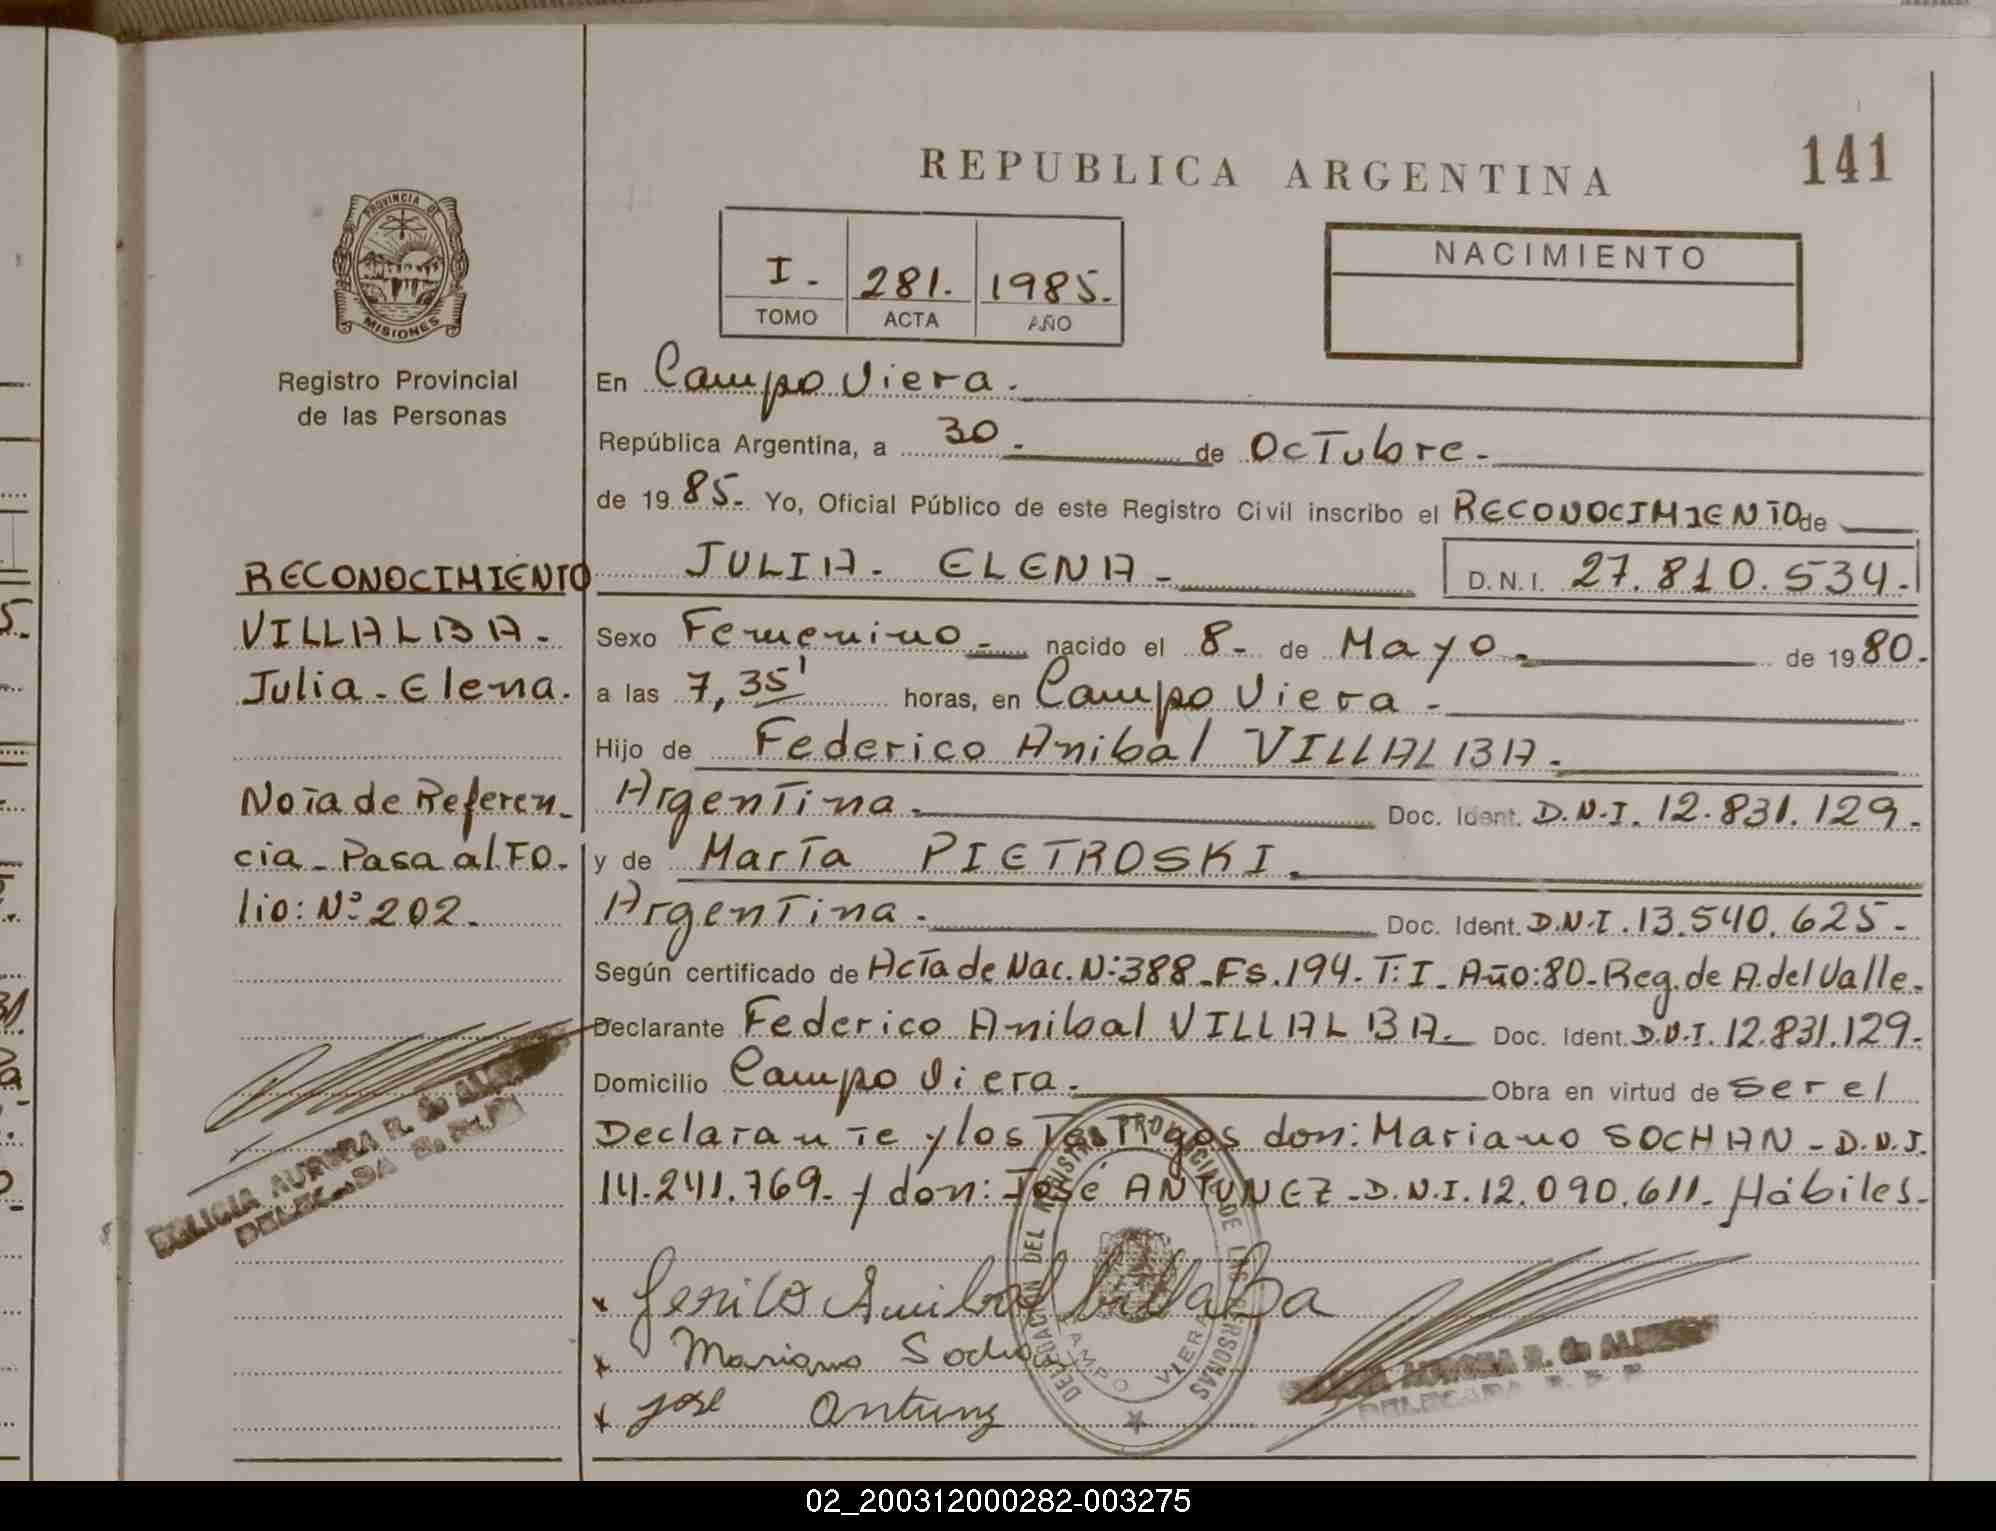 141
REPUBLICA ARGENTINA
PROVINCIA DE
MISIONES
Registro Provincial
de las Personas
I. 281. 1985.
TOMO ACTA AÑO
NACIMIENTO
En Campo Viera.
República Argentina, a 30. de Octubre.
de 19 85. Yo, Oficial Público de este Registro Civil inscribo el RECONOCIMIENTO de
JULIA. ELENA D.N.I. 27.810.534.
Sexo Femenino nacido el 8 de Mayo de 19 80.
a las 7,35' horas, en Campo Viera
Hijo de Federico Anibal VILLALBA.
Argentina. Doc. Ident. D.N.I. 12.831.129.
y de María PIETROSKI.
Argentina. Doc. Ident. D.N.I. 13.540.625
Según certificado de Acta de Nac. N: 388 Fs. 194. T: I Año: 80 Reg. de A. del Valle.
Declarante Federico Anibal VILLALBA. Doc. Ident. D.N.I. 12.831.129.
Domicilio Campo Viera. Obra en virtud de ser el
Declarante y los Testigos don: Mariano SOCHAN - D.N.I.
14.241.769. y don: José ANTUNEZ - D.N.I. 12.090.611. Hábiles.
Anibal Villalba
Mariano
José
RECONOCIMIENTO
VILLALBA.
Julia - Elena.
Nota de Referen-
cia - Pasa al FO-
lio: Nº 202.
AURORA R. de
DELEGADA
DELEGACION DEL REGISTRO PROVINCIAL DE LAS PERSONAS
CAMPO VIERA
AURORA R. de
DELEGADA
02_200312000282-003275